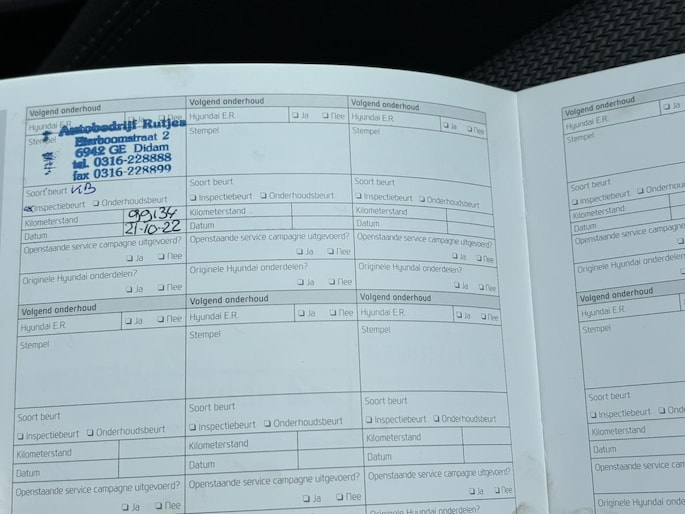 Volgend onderhoud
Hyundai E.R. Ja Nee
Stempel
Autobedrijf Rutjes
Bierboomstraat 2
6942 GE Didam
tel. 0316-228888
fax 0316-228899
Soort beurt KB
Inspectiebeurt Onderhoudsbeurt
Kilometerstand 99134
Datum 21-10-22
Openstaande service campagne uitgevoerd?
Ja Nee
Originele Hyundai onderdelen?
Ja Nee
Volgend onderhoud
Hyundai E.R. Ja Nee
Stempel
Soort beurt
Inspectiebeurt Onderhoudsbeurt
Kilometerstand
Datum
Openstaande service campagne uitgevoerd?
Ja Nee
Originele Hyundai onderdelen?
Ja Nee
Volgend onderhoud
Hyundai E.R. Ja Nee
Stempel
Soort beurt
Inspectiebeurt Onderhoudsbeurt
Kilometerstand
Datum
Openstaande service campagne uitgevoerd?
Ja Nee
Originele Hyundai onderdelen?
Ja Nee
Volgend onderhoud
Hyundai E.R. Ja Nee
Stempel
Soort beurt
Inspectiebeurt Onderhoudsbeurt
Kilometerstand
Datum
Openstaande service campagne uitgevoerd?
Ja Nee
Volgend onderhoud
Hyundai E.R. Ja Nee
Stempel
Soort beurt
Inspectiebeurt Onderhoudsbeurt
Kilometerstand
Datum
Openstaande service campagne uitgevoerd?
Ja Nee
Volgend onderhoud
Hyundai E.R. Ja Nee
Stempel
Soort beurt
Inspectiebeurt Onderhoudsbeurt
Kilometerstand
Datum
Openstaande service campagne uitgevoerd?
Ja Nee
Originele Hyundai onderdelen?
Volgend onderhoud
Hyundai E.R. Ja
Stempel
Soort beurt
Inspectiebeurt Onderhoudsbeu
Kilometerstand
Datum
Openstaande service campagne
Originele Hyundai onderdelen?
Volgend onderhoud
Hyundai E.R.
Stempel
Soort beurt
Inspectiebeurt Onde
Kilometerstand
Datum
Openstaande service cam